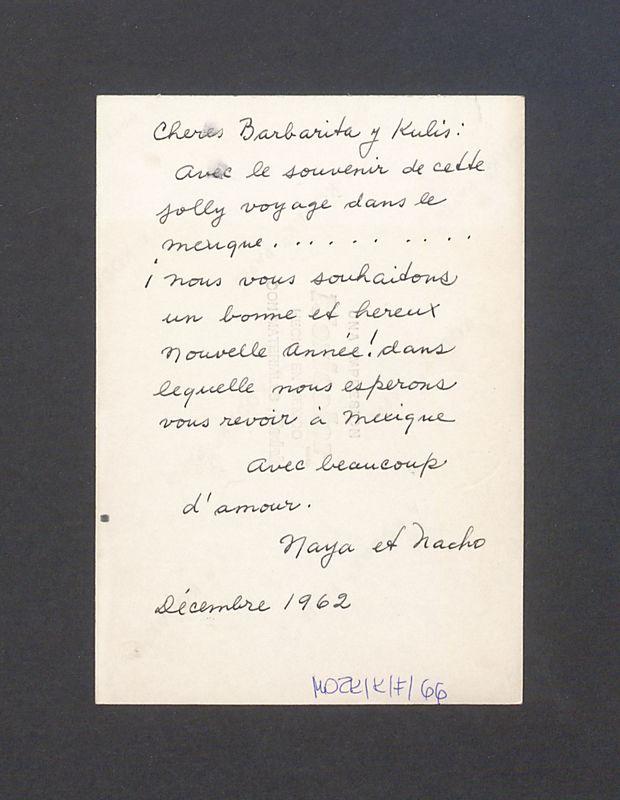 Cheres Barbarita y Kulis:
Avec le souvenir de cette
jolly voyage dans le
mexique..........
¡Nous vous souhaitons
un bonne et hereux
Nouvelle Année! dans
lequelle nous esperons
vous revoir à Mexique
Avec beaucoup
d'amour.
Naya et Nacho
Décembre 1962